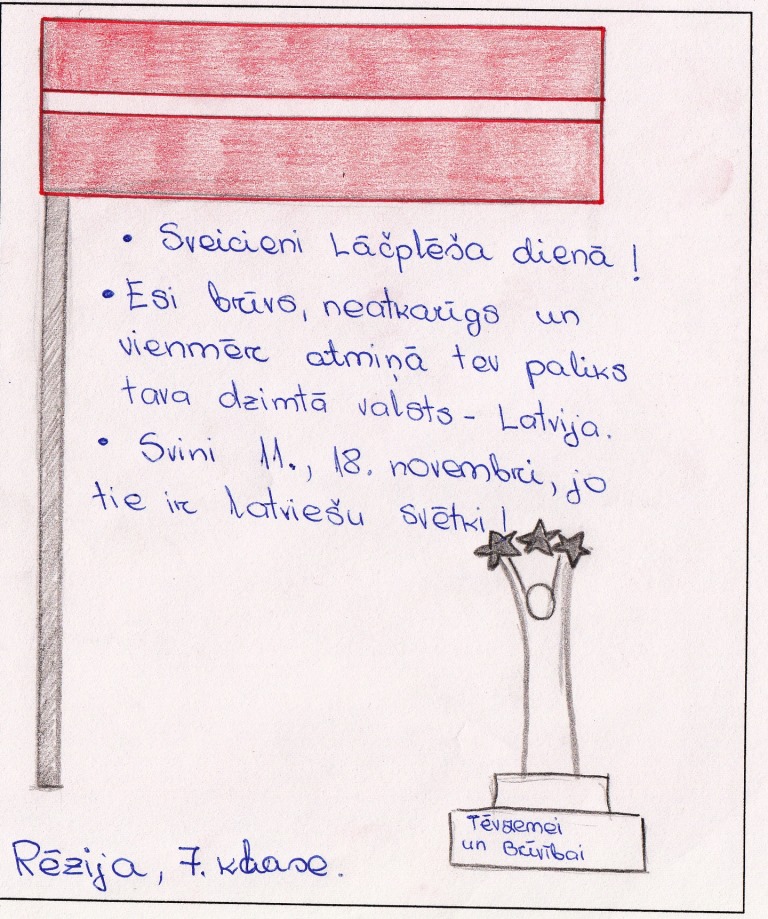 • Sveicieni Lāčplēša dienā !
• Esi brīvs, neatkarīgs un
vienmēr atmiņā tev paliks
tava dzimtā valsts - Latvija.
• Svini 11., 18. novembri, jo
tie ir latviešu svētki !
Tēvzemei
un Brīvībai
Rēzija, 7. klase.